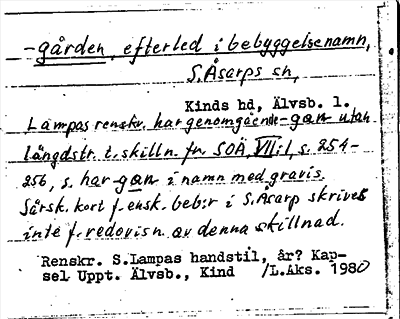 -gården, efterled i bebyggelsenamn,
S. Åsarps sn,
Kinds hd, Älvsb. l.
Lampas renskr. har genomgående -gan utan
längdstr. t. skilln. fr. SOÄ, VII:1, s. 254-
256, s. har -gan i namn med gravis.
Särsk. kort f. ensk. beb:r i S. Åsarp skrives
inte f. redovisn. av denna skillnad.
Renskr. S.Lampas handstil, år? Kap-
sel Uppt. Älvsb., Kind /L.Aks. 1980